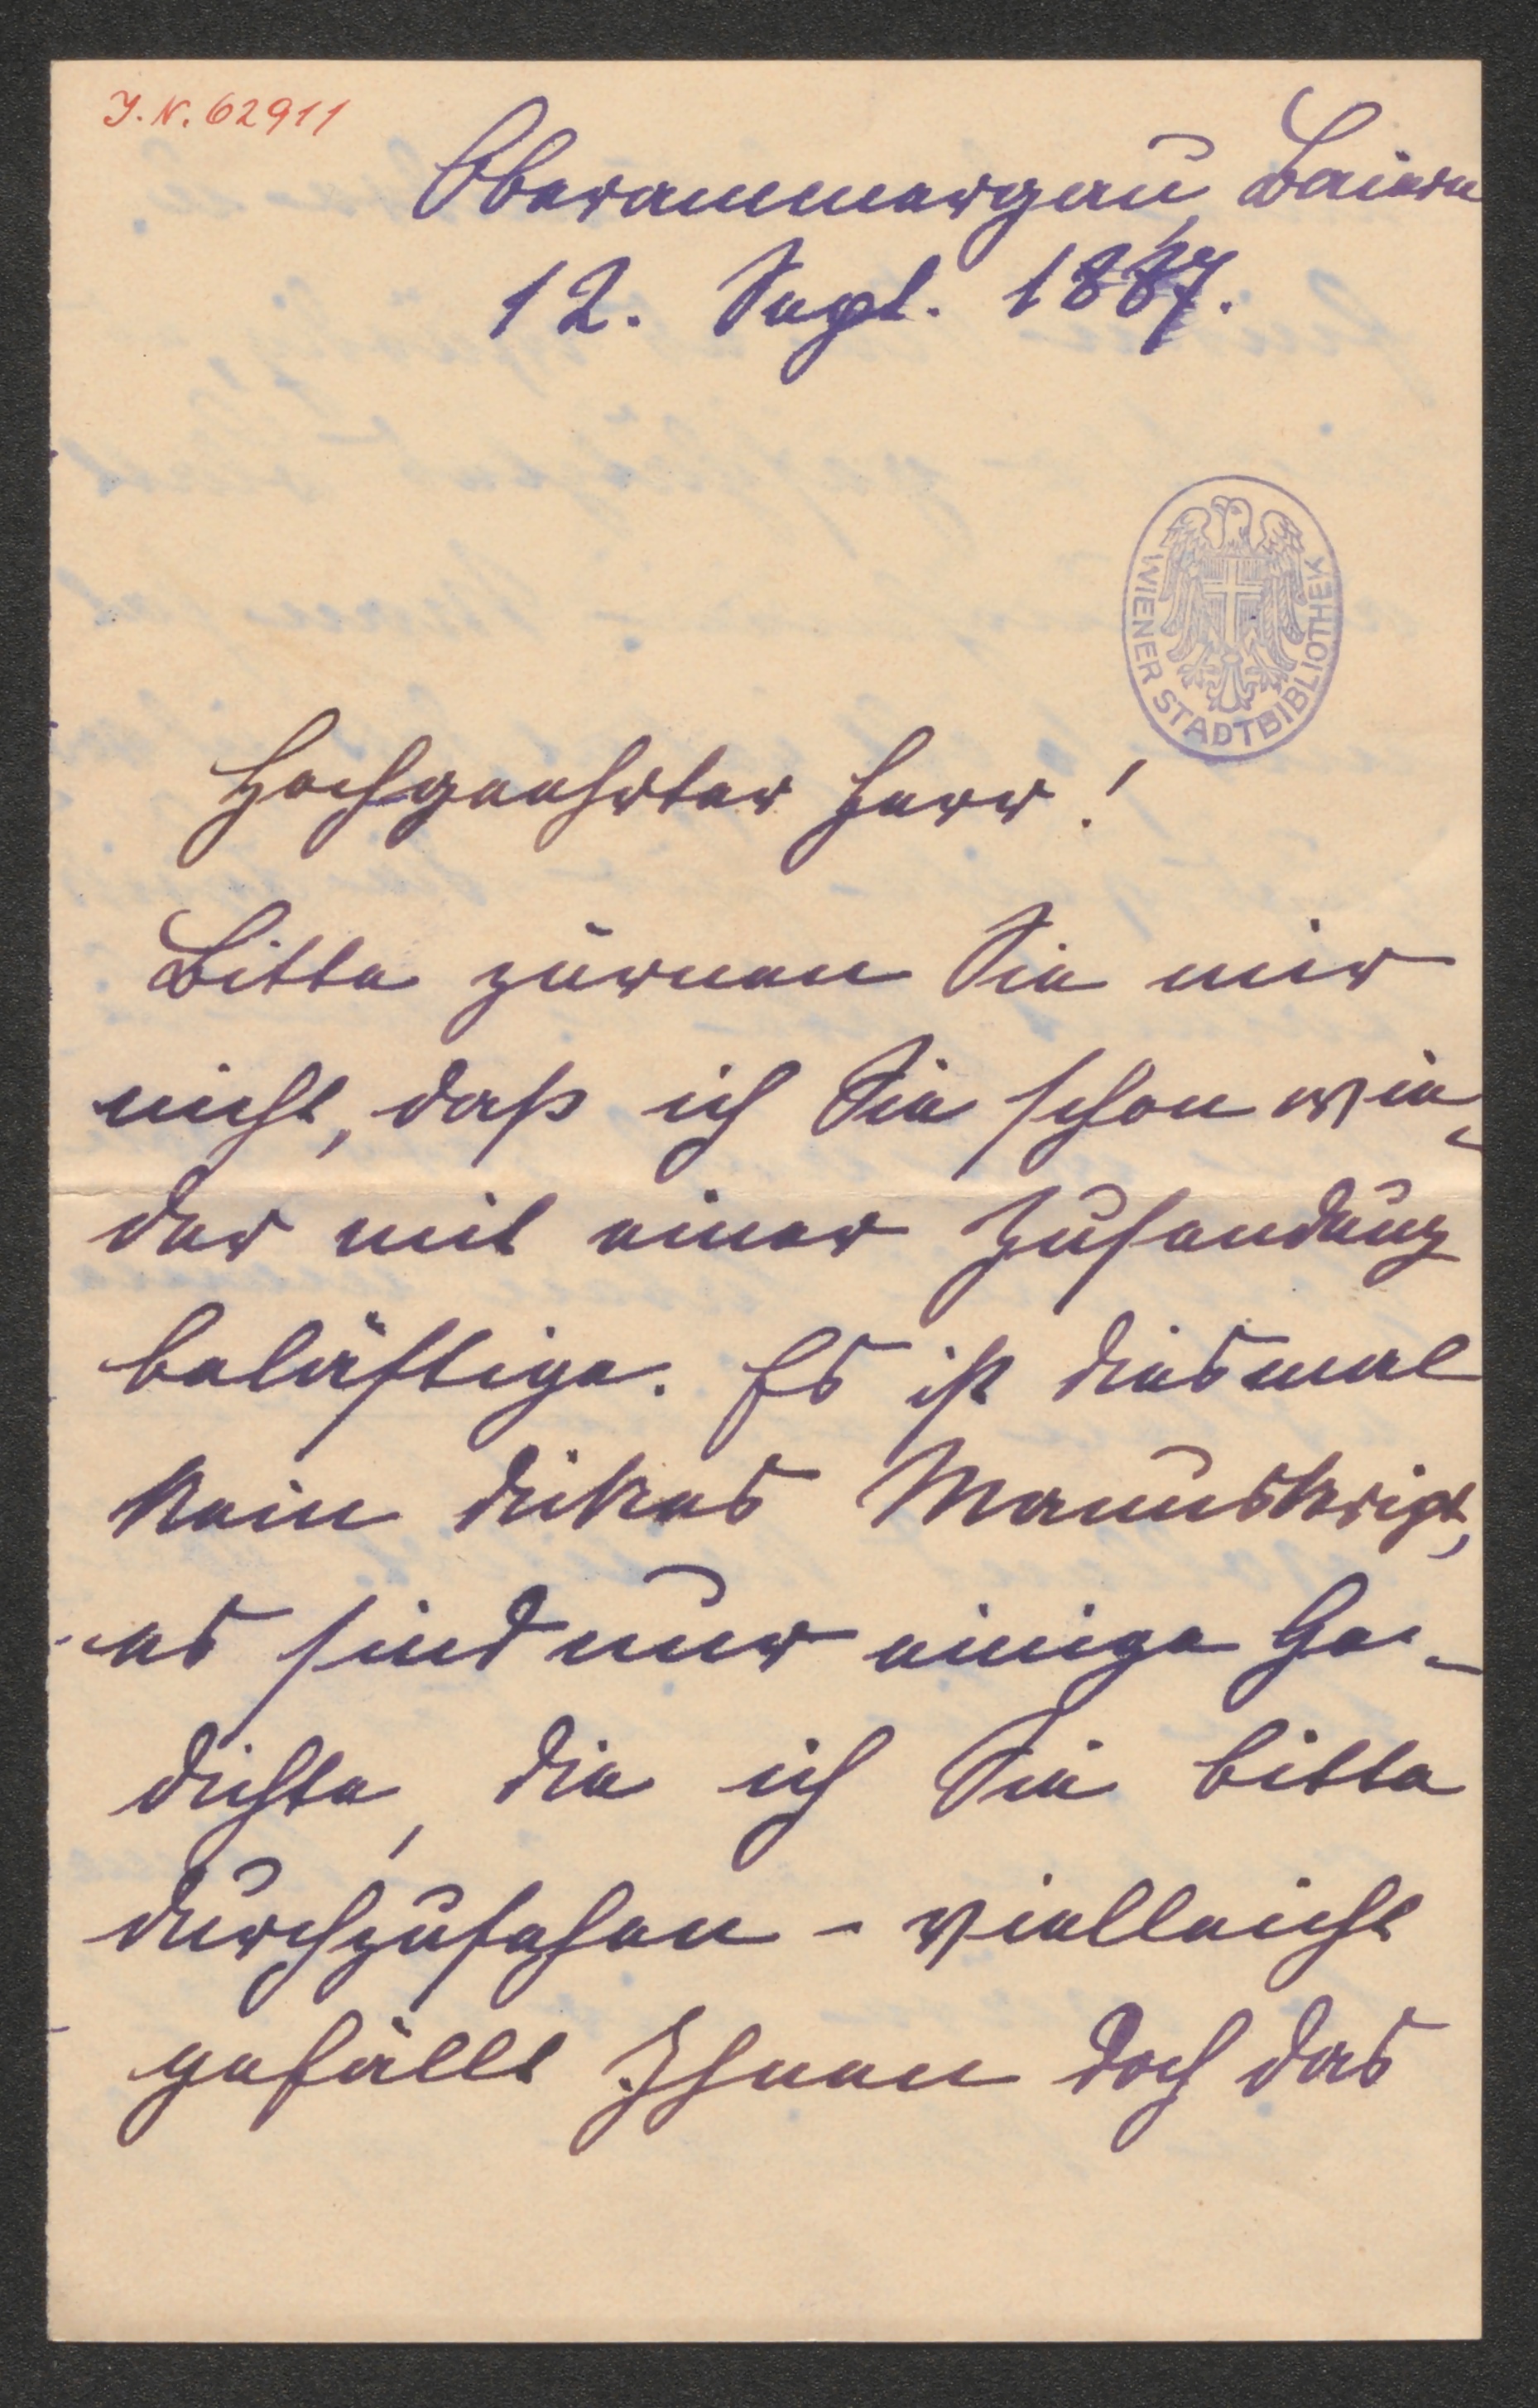 J. N. 62911
Oberammergau, Baiern
12. Sept. 1887.
WIENER STADTBIBLIOTHEK
Hochgeehrter Herr!
Bitte zürnen Sie mir
nicht, daß ich Sie schon wie-
der mit einer Zusendung
belästige. Es ist diesmal
kein dikes Manuskript,
es sind nur einige Ge-
dichte, die ich Sie bitte
durchzusehen - vielleicht
gefällt Ihnen doch das